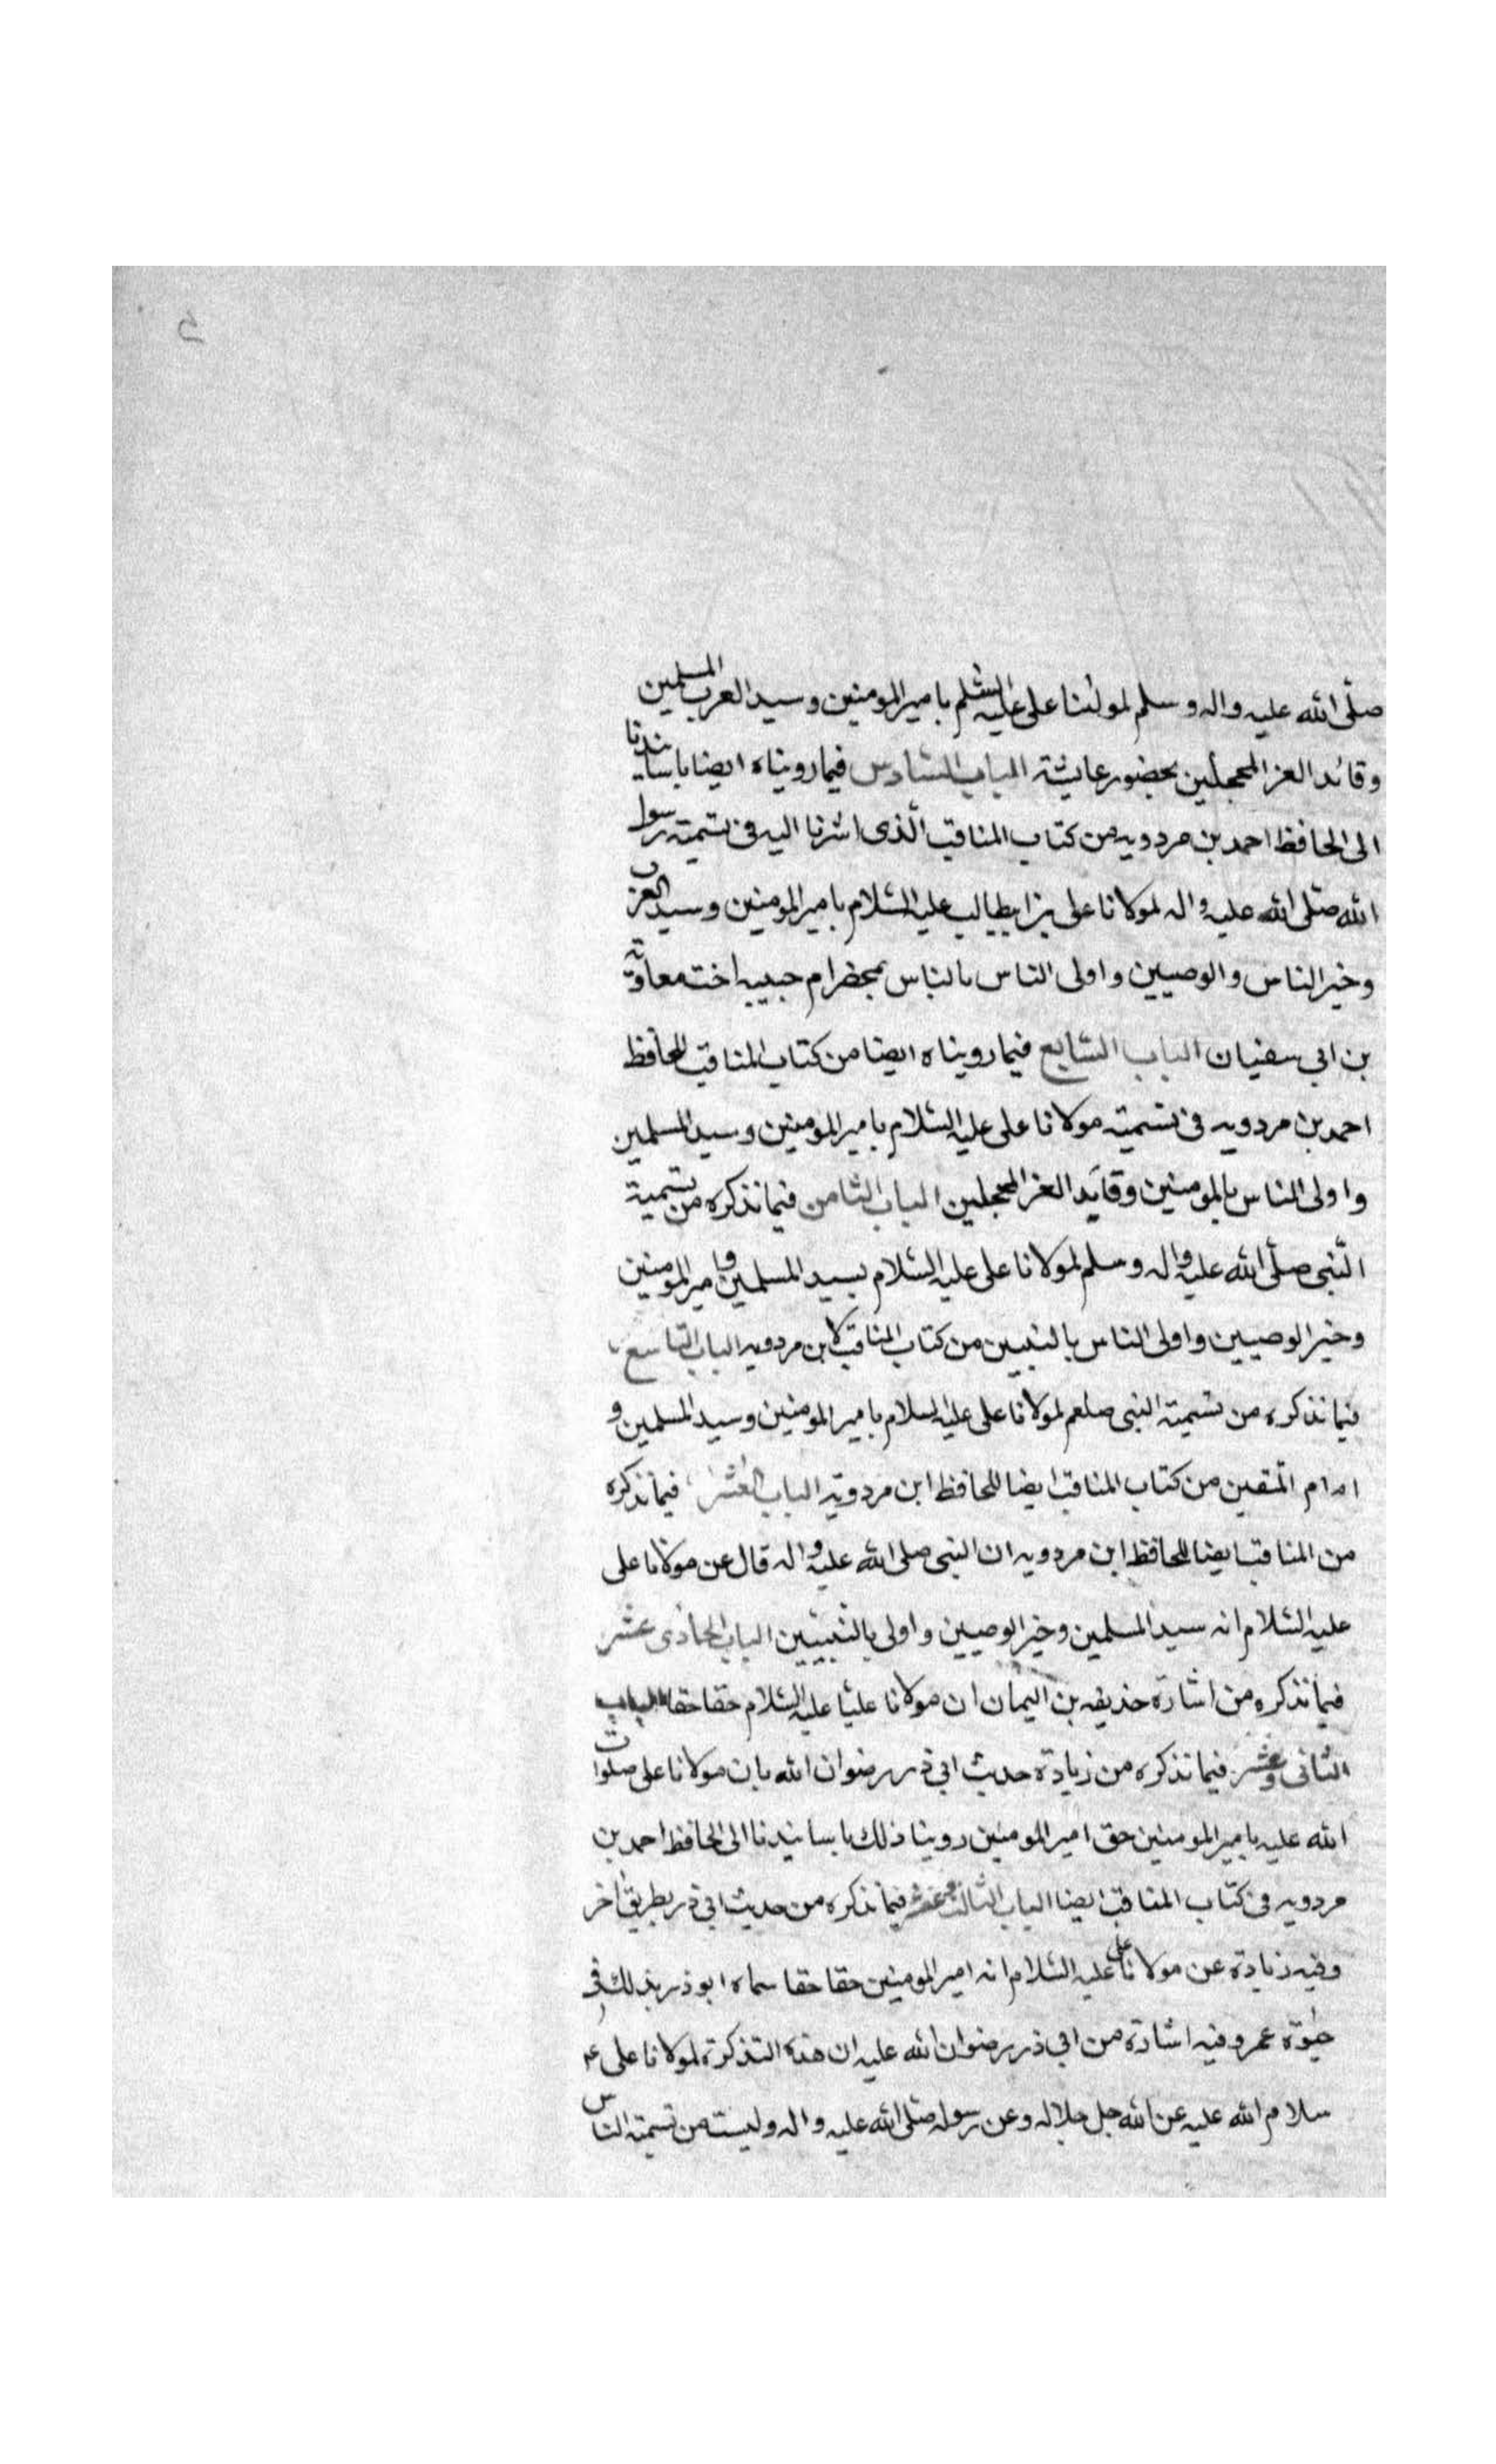 صلّى الله عليه واله وسلم لمولٰنا على عليه السّلم بامير المومنين وسيد العرب المسلمين
وقائد الغر المحجلين بحضور عايشة الباب السّادس فيما رويناه ايضا باسانيدنا
الى الحافظ احمد بن مردويه من كتاب المناقب الّذى اشرنا اليه فى تسمية رسول
الله صلّى الله عليه واله لمولانا على بن ابيطالب عليه السّلام بامير المومنين وسيد العرب
وخير الناس والوصيين واولى الناس بالناس بمحضر ام حبيبه اخت معاوية
بن ابي سفيان الباب السّابع فيما رويناه ايضا من كتاب المناقب للحافظ
احمد بن مردويه فى تسمية مولانا على عليه السّلام بامير المومنين وسيد المسلمين
واولى الناس بالمومنين وقايد الغر المحجلين الباب الثامن فيما نذكره من تسمية
النّبى صلّى الله عليه واله وسلم لمولانا على عليه السّلام بسيد المسلمين وامير المومنين
وخير الوصيين واولى الناس بالنبيين من كتاب المناقب لابن مردويه الباب التاسع
فيما نذكره من تسمية النبى صلعم لمولانا على عليه السلام بامير المومنين وسيد المسلمين و
امام المتقين من كتاب المناقب ايضا للحافظ ابن مردويه الباب العشر فيما نذكره
من المناقب ايضا للحافظ ابن مردويه ان النبى صلى الله عليه واله قال عن مولانا على
عليه السّلام انه سيد المسلمين وخير الوصيين واولى بالنبيّين الباب الحادى عشر
فيما نذكره من اشارة حذيفه بن اليمان ان مولانا عليّا عليه السّلام حقا حقا الباب
الثّانى وعشر فيما نذكره من زيادة حديث ابى ذر رضوان الله بان مولانا على صلوات
الله عليه بامير المومنين حق امير المومنين روينا ذلك باسانيدنا الى الحافظ احمد بن
مردويه فى كتاب المناقب ايضا الباب الثالث وعشر فيما نذكره من حديث ابى ذر بطريق اخر
وفيه زيادة عن مولانا على عليه السّلام انه امير المومنين حقا حقا سماه ابوذر بذلك فى
حيٰوة عمر وفيه اشارة من ابي ذر رضوان الله عليه ان هذه التذكرة لمولانا على عم
سلام الله عليه عن الله جل جلاله وعن رسوله صلّى الله عليه واله وليست من تسمية الناس